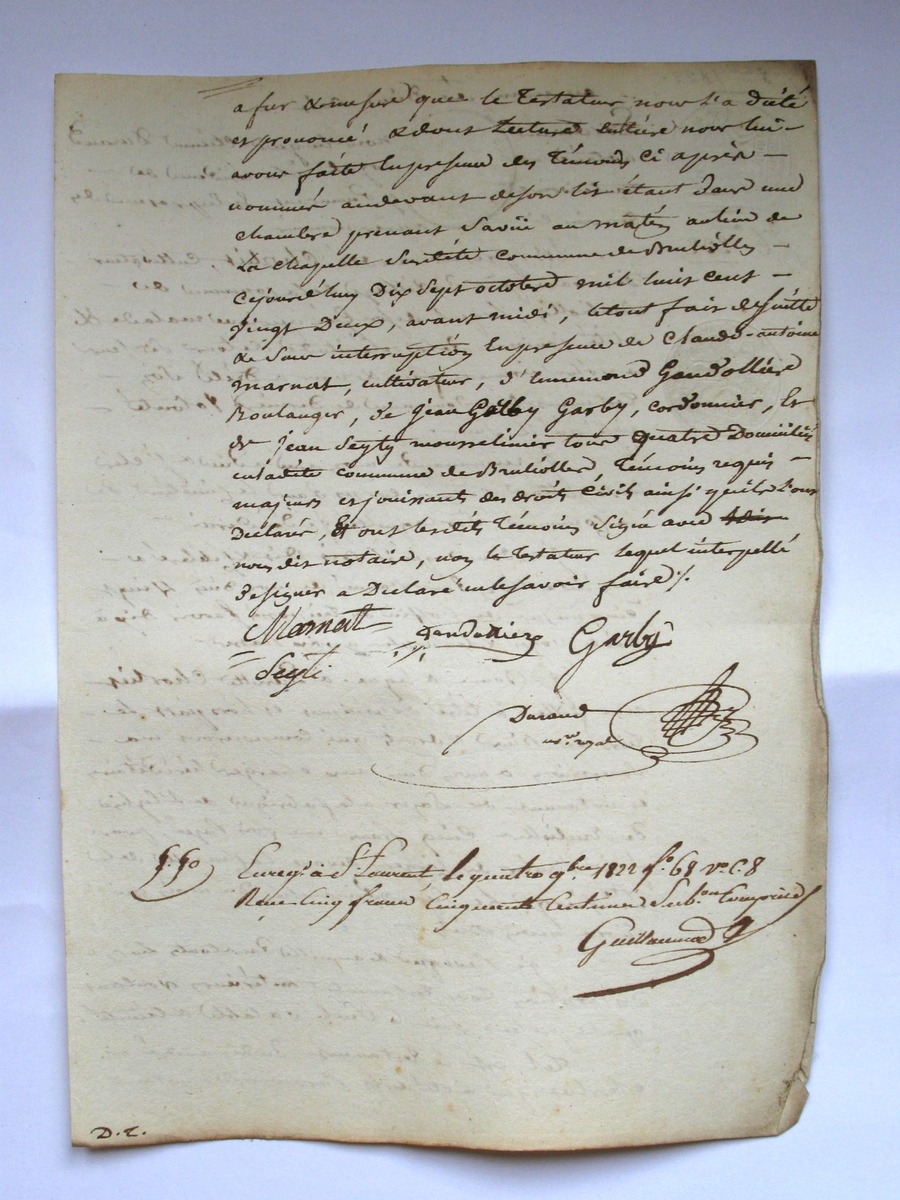 a fur & mesure que le Testateur nous l'a dicté
et prononcé & dont Lecture Entiere nous lui
avons faite En presence des Témoins Ci après
nommés audevant deson lit étant dans une
chambre prenant Savüe au matin aulieu de
La Chapelle Susdite Commune de Brulioles
Cejourd'huy Dix Sept octobre mil huit cent
vingt Deux, avant midi, letout fait desuitte
& Sans interruption En presence de Claude-antoine
marnat, cultivateur, d'Ennemond Gandolliere
Boulanger, de Jean Garby, cordonnier, Et
de Jean Seyty mousselinier tous quatre Domiciliés
enladite commune de Brulioles, Témoins requis
majeurs et jouissants des droits Civils ainsi qu'ils L'ont
Déclaré, Et ont lesdits Témoins Signé avec
nous dit notaire, non le Testateur lequel interpellé
designer a Déclaré nelesavoir faire ./.
Marnat Gandolliere Garby
Seyti
Durand
nre. royal
5.50 Enregé. à St. Laurent, le quatre 9bre 1822 fo. 68 vo. C. 8
Reçu Cinq francs Cinquante Centimes Subon. Comprise
Guillaumod
D. T.